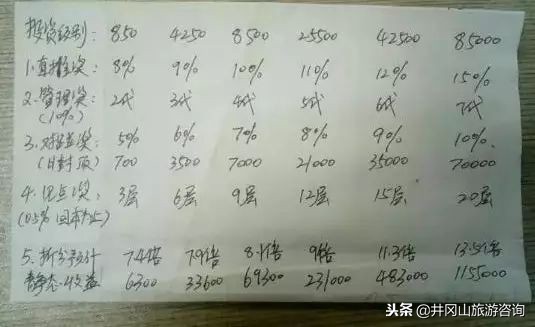 投资级别: 850 4250 8500 25500 42500 85000
1.直推奖: 8% 9% 10% 11% 12% 15%
2.管理奖: 2代 3代 4代 5代 6代 7代
(10%)
3.对碰奖: 5% 6% 7% 8% 9% 10%
(日封顶) 700 3500 7000 21000 35000 70000
4.见点奖: 3层 6层 9层 12层 15层 20层
(0.5% 回本为止)
5.拆分预计 7.4倍 7.9倍 8.1倍 9倍 11.3倍 13.5倍
静态收益 6300 33600 69300 231000 483000 1155000
头条 @井冈山旅游咨询